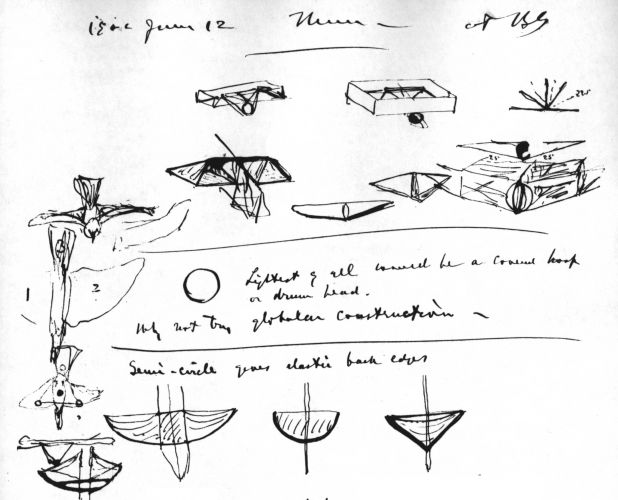 June 12 at BB
22.5°
25° 25°
1 2
Lightest of all would be a covered hoop
or drum head.
Why not try globular construction —
Semi-circle gives elastic back edges